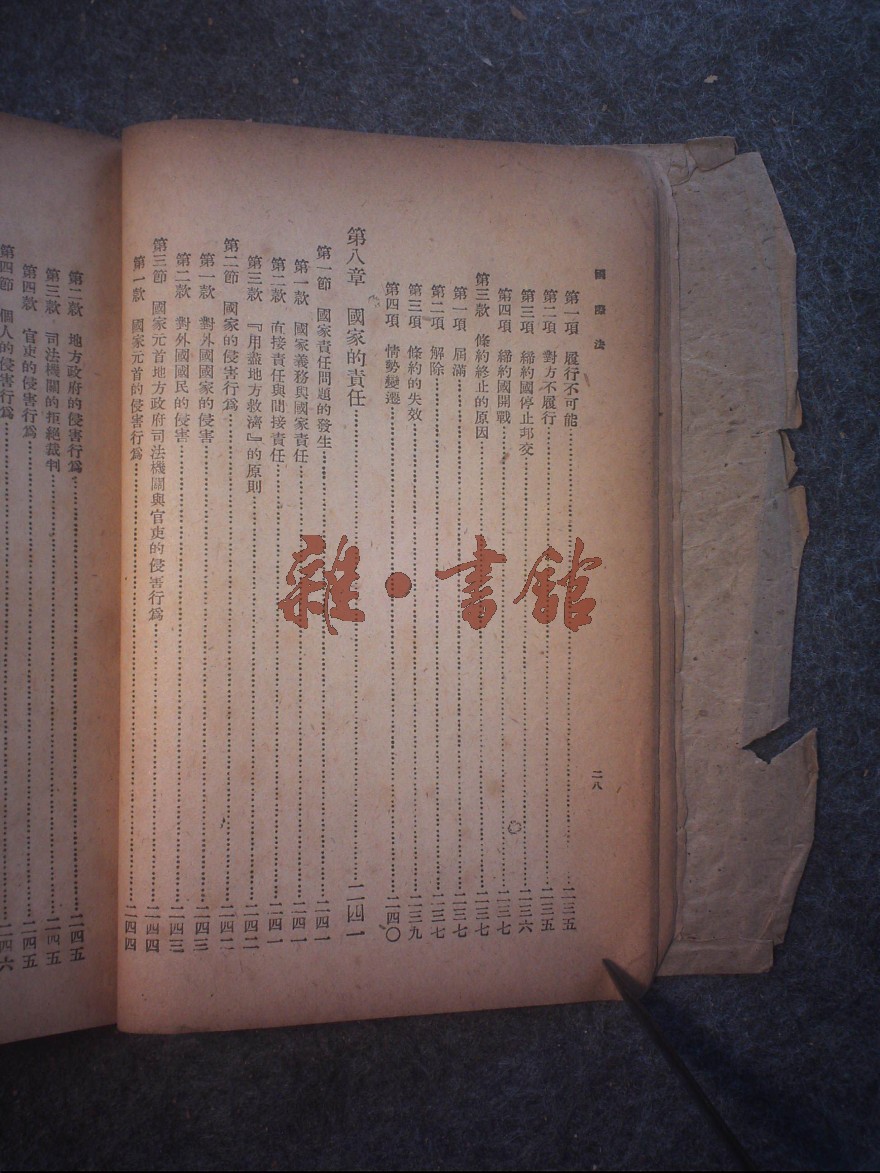 國際法
二八
第一項 履行不可能……二三五
第二項 對方不履行……二三五
第三項 締約國停止邦交……二三六
第四項 締約國開戰……二三七
第三款 條約終止的原因……二三七
第一項 屆滿……二三七
第二項 解除……二三七
第三項 條約的失效……二三九
第四項 情勢變遷……二四〇
第八章 國家的責任……二四一
第一節 國家責任問題的發生……二四一
第一款 國家義務與國家責任……二四一
第二款 直接責任與間接責任……二四一
第三款 『用盡地方救濟』的原則……二四二
第二節 國家的侵害行爲……二四二
第一款 對外國國家的侵害……二四三
第二款 對外國國民的侵害……二四三
第三節 國家元首地方政府司法機關與官吏的侵害行爲……二四四
第一款 國家元首的侵害行爲……二四四
第二款 地方政府的侵害行爲……二四五
第三款 司法機關的拒絕裁判……二四五
第四款 官吏的侵害行爲……二四五
第四節 個人的侵害行爲……二四六
雜·書館